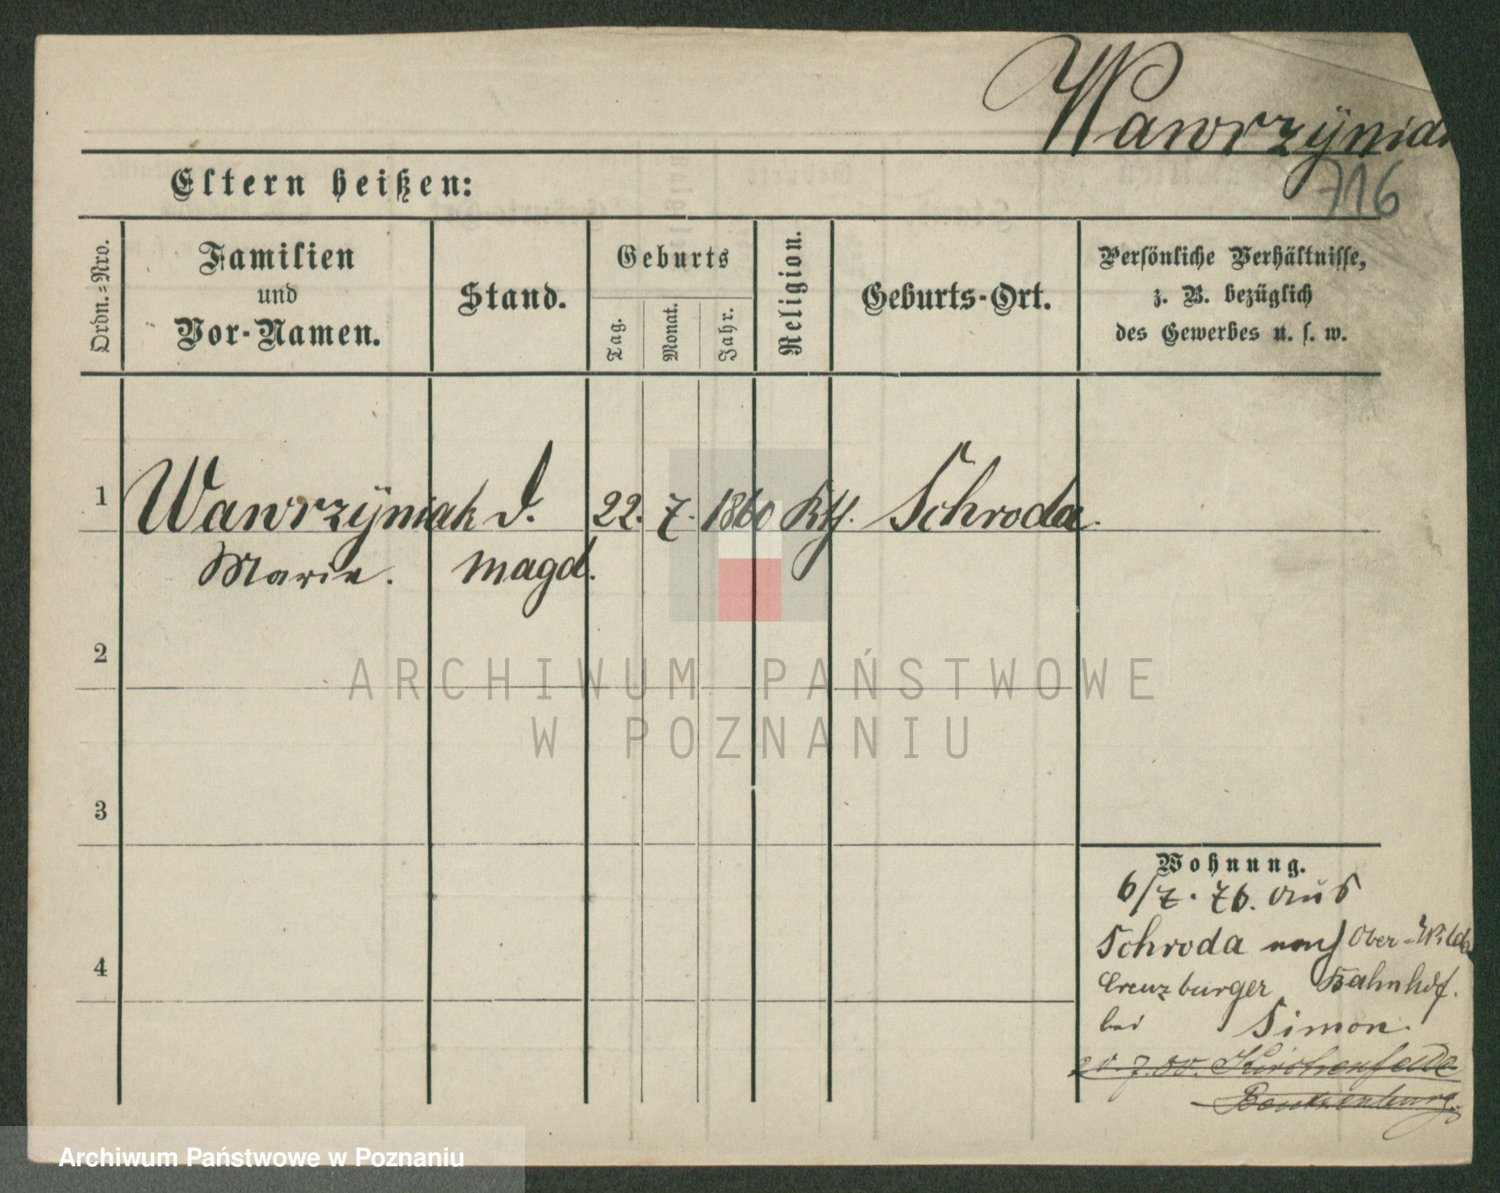 Wawrzÿniak
716
Eltern heißen:
Ordn.=Nro.
Familien
und
Vor-Namen.
Stand.
Geburts
Tag.
Monat.
Jahr.
Religion.
Geburts-Ort.
Persönliche Verhältnisse,
z. B. bezüglich
des Gewerbes u. s. w.
1
Wawrzÿniak d. 22. 7. 1860 Kth. Schroda.
Marie. magd.
2
ARCHIWUM PAŃSTWOWE
W POZNANIU
3
4
Wohnung.
6/7. 76. aus
Schroda nach Ober-Wilda
Creuzburger Bahnhof.
bei Simon.
20. 7. 80.
Archiwum Państwowe w Poznaniu